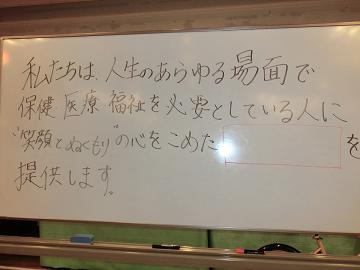 私たちは、人生のあらゆる場面で
保健、医療、福祉を必要としている人に
"笑顔とぬくもり"の心をこめた を
提供します。